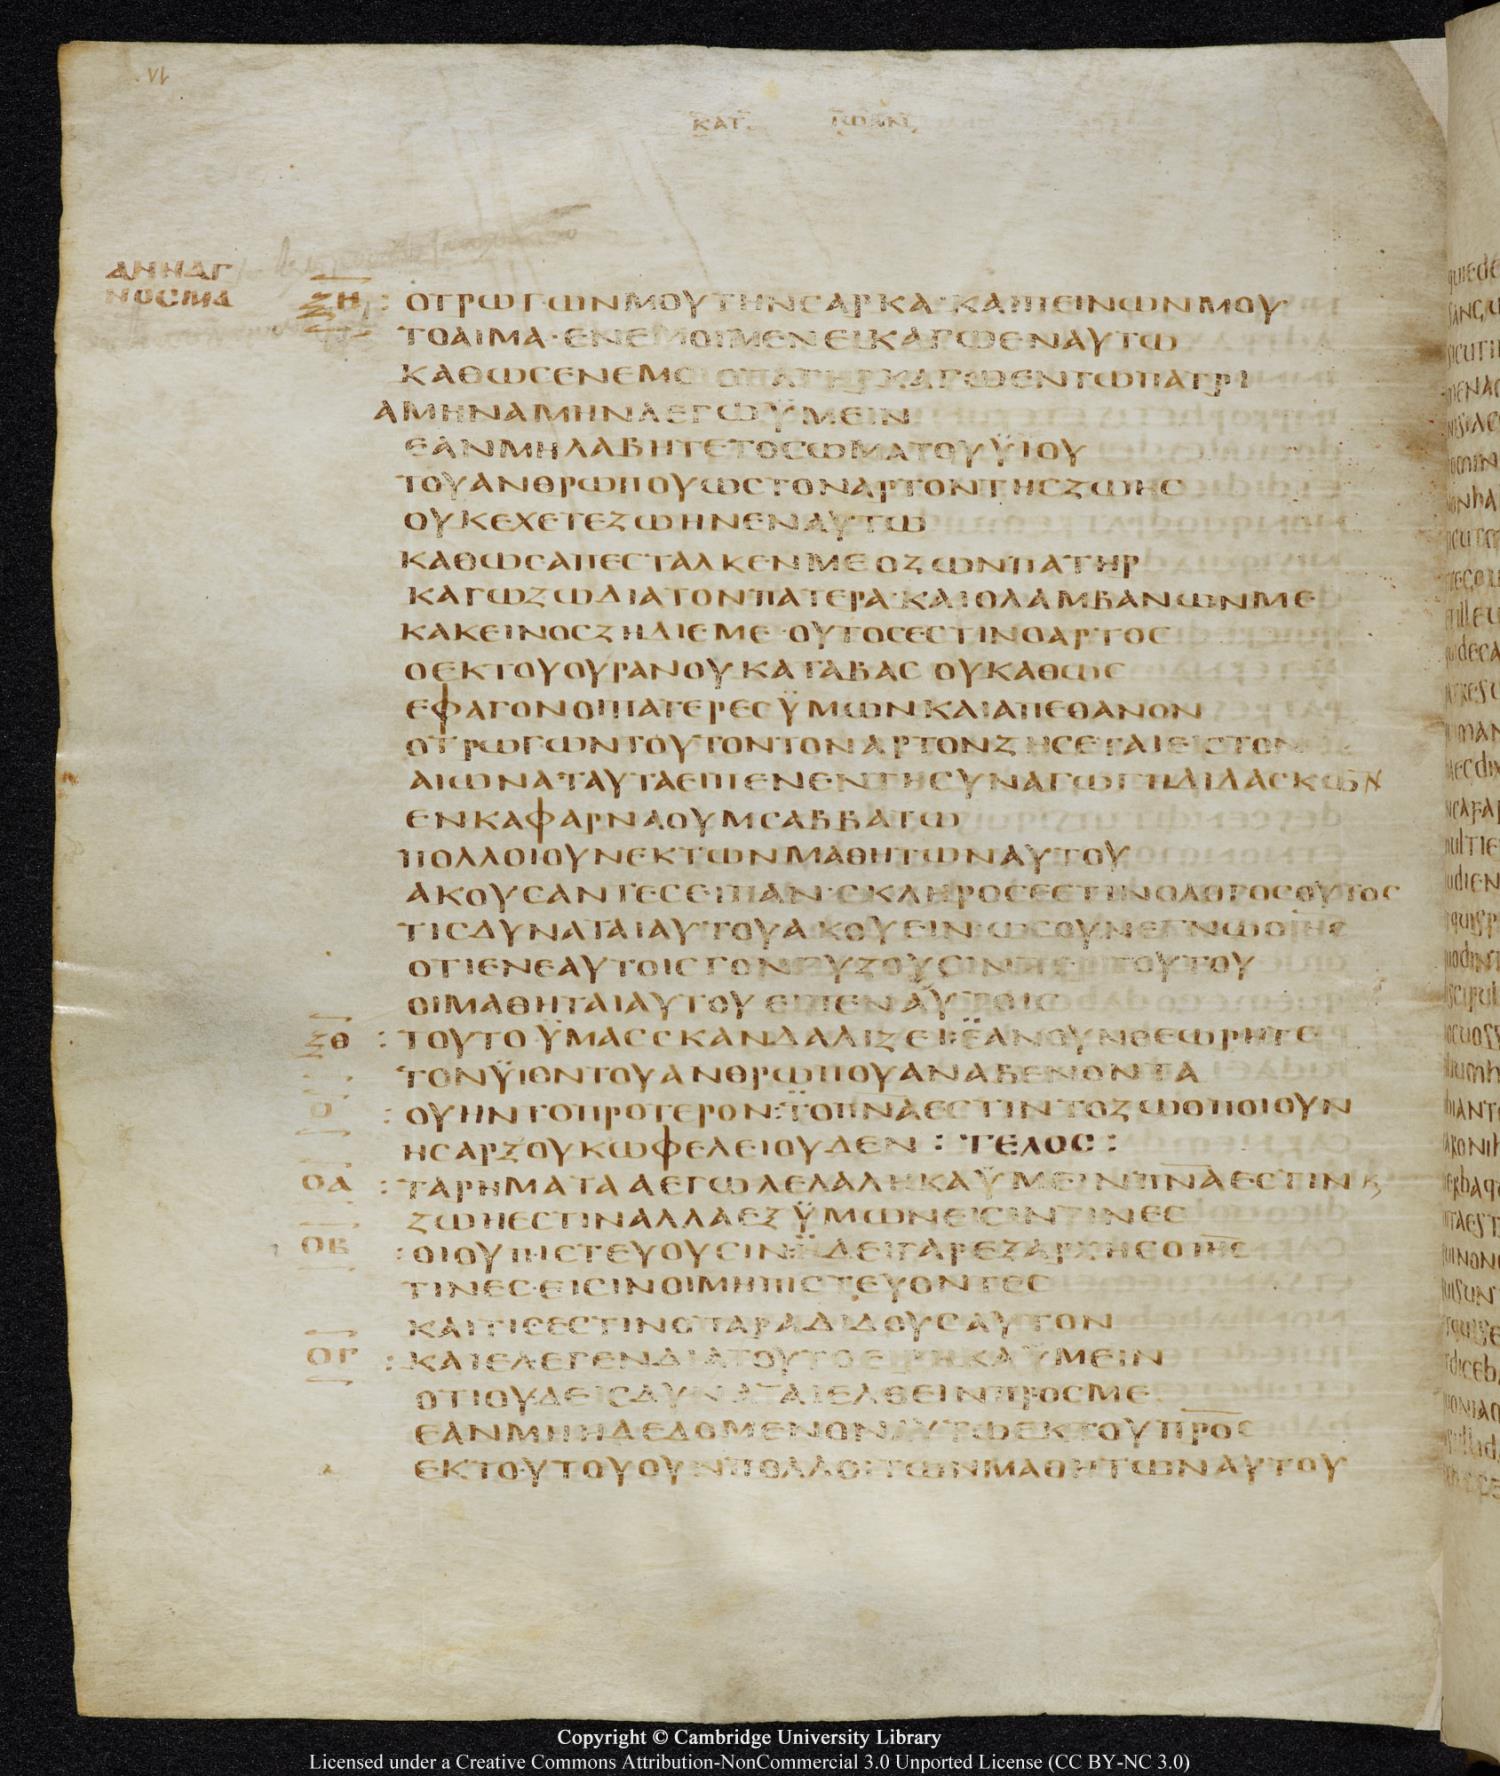 VI
ΚΑΤ ΙΩΑΝ
ΑΝΝΑΓ
ΝΟΣΜΑ
ΞΗ : ΟΤΡΩΓΩΝΜΟΥΤΗΝΣΑΡΚΑ· ΚΑΙΠΕΙΝΩΝΜΟΥ
ΤΟΑΙΜΑ· ΕΝΕΜΟΙΜΕΝΕΙΚΑΓΩΕΝΑΥΤΩ
ΚΑΘΩΣΕΝΕΜΟΙΟΠΑΤΗΡΚΑΓΩΕΝΤΩΠΑΤΡΙ
ΑΜΗΝΑΜΗΝΛΕΓΩΫΜΕΙΝ
ΕΑΝΜΗΛΑΒΗΤΕΤΟΣΩΜΑΤΟΥΫΙΟΥ
ΤΟΥΑΝΘΡΩΠΟΥΩΣΤΟΝΑΡΤΟΝΤΗΣΖΩΗΣ
ΟΥΚΕΧΕΤΕΖΩΗΝΕΝΑΥΤΩ
ΚΑΘΩΣΑΠΕΣΤΑΛΚΕΝΜΕΟΖΩΝΠΑΤΗΡ
ΚΑΓΩΖΩΔΙΑΤΟΝΠΑΤΕΡΑ· ΚΑΙΟΛΑΜΒΑΝΩΝΜΕ
ΚΑΚΕΙΝΟΣΖΗΔΙΕΜΕ· ΟΥΤΟΣΕΣΤΙΝΟΑΡΤΟΣ
ΟΕΚΤΟΥΟΥΡΑΝΟΥΚΑΤΑΒΑΣ ΟΥΚΑΘΩΣ
ΕΦΑΓΟΝΟΙΠΑΤΕΡΕΣΫΜΩΝΚΑΙΑΠΕΘΑΝΟΝ
ΟΤΡΩΓΩΝΤΟΥΤΟΝΤΟΝΑΡΤΟΝΖΗΣΕΤΑΙΕΙΣΤΟΝ
ΑΙΩΝΑ· ΤΑΥΤΑΕΙΠΕΝΕΝΤΗΣΥΝΑΓΩΓΗΔΙΔΑΣΚΩΝ
ΕΝΚΑΦΑΡΝΑΟΥΜΣΑΒΒΑΤΩ
ΠΟΛΛΟΙΟΥΝΕΚΤΩΝΜΑΘΗΤΩΝΑΥΤΟΥ
ΑΚΟΥΣΑΝΤΕΣΕΙΠΑΝ· ΣΚΛΗΡΟΣΕΣΤΙΝΟΛΟΓΟΣΟΥΤΟΣ
ΤΙΣΔΥΝΑΤΑΙΑΥΤΟΥΑΚΟΥΕΙΝ ΩΣΟΥΝΕΓΝΩΟΙΗΣ
ΟΤΙΕΝΕΑΥΤΟΙΣΓΟΝΓΥΖΟΥΣΙΝΠΕΡΙΤΟΥΤΟΥ
ΟΙΜΑΘΗΤΑΙΑΥΤΟΥ ΕΙΠΕΝΑΥΤΟΙΣ
ΞΘ : ΤΟΥΤΟΫΜΑΣΣΚΑΝΔΑΛΙΖΕΙ· ΕΑΝΟΥΝΘΕΩΡΗΤΕ
ΤΟΝΫΙΟΝΤΟΥΑΝΘΡΩΠΟΥΑΝΑΒΕΝΟΝΤΑ
Ο : ΟΥΗΝΤΟΠΡΟΤΕΡΟΝ: ΤΟΠΝΑΕΣΤΙΝΤΟΖΩΟΠΟΙΟΥΝ
ΗΣΑΡΞΟΥΚΩΦΕΛΕΙΟΥΔΕΝ : ΤΕΛΟΣ :
ΟΑ : ΤΑΡΗΜΑΤΑΑΕΓΩΛΕΛΑΛΗΚΑΫΜΕΙΝΠΝΑΕΣΤΙΝΚ
ΖΩΗΕΣΤΙΝΑΛΛΑΕΞΫΜΩΝΕΙΣΙΝΤΙΝΕΣ
ΟΒ : ΟΙΟΥΠΙΣΤΕΥΟΥΣΙΝ: ΗΔΕΙΓΑΡΕΞΑΡΧΗΣΟΙΗΣ
ΤΙΝΕΣ· ΕΙΣΙΝΟΙΜΗΠΙΣΤΕΥΟΝΤΕΣ
ΚΑΙΤΙΣΕΣΤΙΝΟΠΑΡΑΔΙΔΟΥΣΑΥΤΟΝ
ΟΓ : ΚΑΙΕΛΕΓΕΝΔΙΑΤΟΥΤΟΕΙΡΗΚΑΫΜΕΙΝ
ΟΤΙΟΥΔΕΙΣΔΥΝΑΤΑΙΕΛΘΕΙΝΠΡΟΣΜΕ
ΕΑΝΜΗΗΔΕΔΟΜΕΝΟΝΑΥΤΩΕΚΤΟΥΠΡΟΣ
ΕΚΤΟΥΤΟΥΟΥΝΠΟΛΛΟΙΤΩΝΜΑΘΗΤΩΝΑΥΤΟΥ
Copyright © Cambridge University Library
Licensed under a Creative Commons Attribution-NonCommercial 3.0 Unported License (CC BY-NC 3.0)